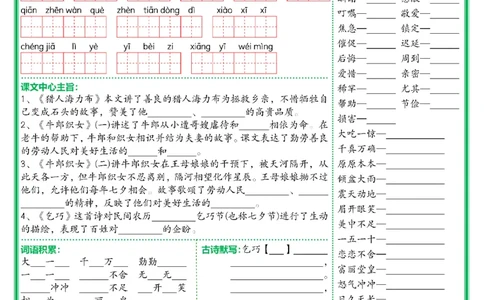 qiān zhēn wàn què zhèn tiān dòng dì xiāo xī xī
chéng jiā lì yè yī bèi zi xiāng yī wéi mìng
课文中心主旨：
1、《猎人海力布》本文讲了善良的猎人海力布为拯救乡亲，不惜牺牲自
己变成石头的故事，赞美了他________、________的高贵品质。
2、《牛郎织女》(一)讲述了牛郎从小遭哥嫂虐待和______相依为命。在
老牛的帮助下，牛郎和织女相识并结为夫妻的故事。课文表达了勤劳善良
的劳动人民对美好生活的______和______。
3、《牛郎织女》(二)讲牛郎织女在王母娘娘的干预下，被天河隔开，从
此天各一方，但牛郎织女不忍离别，隔河相望化作星辰。王母娘娘拗不过
他们，允许他们每年七夕相会。故事歌颂了劳动人民________、______
________的精神，反映了他们对美好生活的________。
4、《乞巧》这首诗对民间农历________乞巧节(也称七夕节)进行了生动
的描绘，表现了百姓对________的企盼。
词语积累：
大___一___ 千___万___ 勤勤______
一___一___ ______不舍 无___无___
______冲冲 ______不足 ___开___笑
古诗默写：乞巧【___】______
叮嘱— 敬爱—
焦急— 镇定—
催促— 迟延—
后悔— 周到—
爱惜— 亲密—
稀罕— 尤其—
帮助— 节俭—
损害—
大吃一惊—
千真万确—
原原本本—
倾盆大雨—
震天动地—
眉开眼笑—
美中不足—
一五一十—
恋恋不舍—
富丽堂皇—
怒气冲冲—